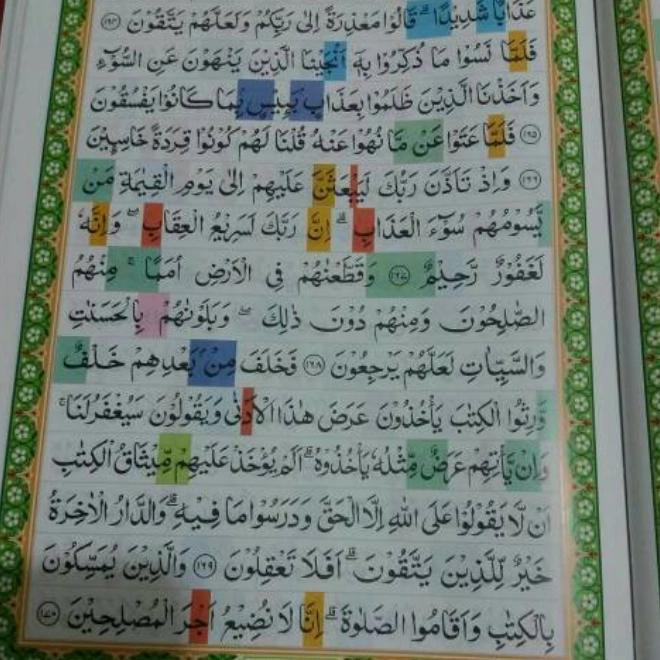 عَذَابًا شَدِيْدًاۗ قَالُوْا مَعْذِرَةً اِلٰى رَبِّكُمْ وَلَعَلَّهُمْ يَتَّقُوْنَ ﴿١٦٤﴾
فَلَمَّا نَسُوْا مَا ذُكِّرُوْا بِهٖٓ اَنْجَيْنَا الَّذِيْنَ يَنْهَوْنَ عَنِ السُّوْۤءِ
وَاَخَذْنَا الَّذِيْنَ ظَلَمُوْا بِعَذَابٍۢ بَـِٔيْسٍۢ بِمَا كَانُوْا يَفْسُقُوْنَ
﴿١٦٥﴾ فَلَمَّا عَتَوْا عَنْ مَّا نُهُوْا عَنْهُ قُلْنَا لَهُمْ كُوْنُوْا قِرَدَةً خَاسِـِٕيْنَ
﴿١٦٦﴾ وَاِذْ تَاَذَّنَ رَبُّكَ لَيَبْعَثَنَّ عَلَيْهِمْ اِلٰى يَوْمِ الْقِيٰمَةِ مَنْ
يَّسُوْمُهُمْ سُوْۤءَ الْعَذَابِۗ اِنَّ رَبَّكَ لَسَرِيْعُ الْعِقَابِۖ وَاِنَّهٗ
لَغَفُوْرٌ رَّحِيْمٌ ﴿١٦٧﴾ وَقَطَّعْنٰهُمْ فِى الْاَرْضِ اُمَمًاۚ مِنْهُمُ
الصّٰلِحُوْنَ وَمِنْهُمْ دُوْنَ ذٰلِكَۖ وَبَلَوْنٰهُمْ بِالْحَسَنٰتِ
وَالسَّيِّاٰتِ لَعَلَّهُمْ يَرْجِعُوْنَ ﴿١٦٨﴾ فَخَلَفَ مِنْۢ بَعْدِهِمْ خَلْفٌ
وَّرِثُوا الْكِتٰبَ يَأْخُذُوْنَ عَرَضَ هٰذَا الْاَدْنٰى وَيَقُوْلُوْنَ سَيُغْفَرُ لَنَاۚ
وَاِنْ يَّأْتِهِمْ عَرَضٌ مِّثْلُهٗ يَأْخُذُوْهُۗ اَلَمْ يُؤْخَذْ عَلَيْهِمْ مِّيْثَاقُ الْكِتٰبِ
اَنْ لَّا يَقُوْلُوْا عَلَى اللّٰهِ اِلَّا الْحَقَّ وَدَرَسُوْا مَا فِيْهِۗ وَالدَّارُ الْاٰخِرَةُ
خَيْرٌ لِّلَّذِيْنَ يَتَّقُوْنَۗ اَفَلَا تَعْقِلُوْنَ ﴿١٦٩﴾ وَالَّذِيْنَ يُمَسِّكُوْنَ
بِالْكِتٰبِ وَاَقَامُوا الصَّلٰوةَۗ اِنَّا لَا نُضِيْعُ اَجْرَ الْمُصْلِحِيْنَ ﴿١٧٠﴾